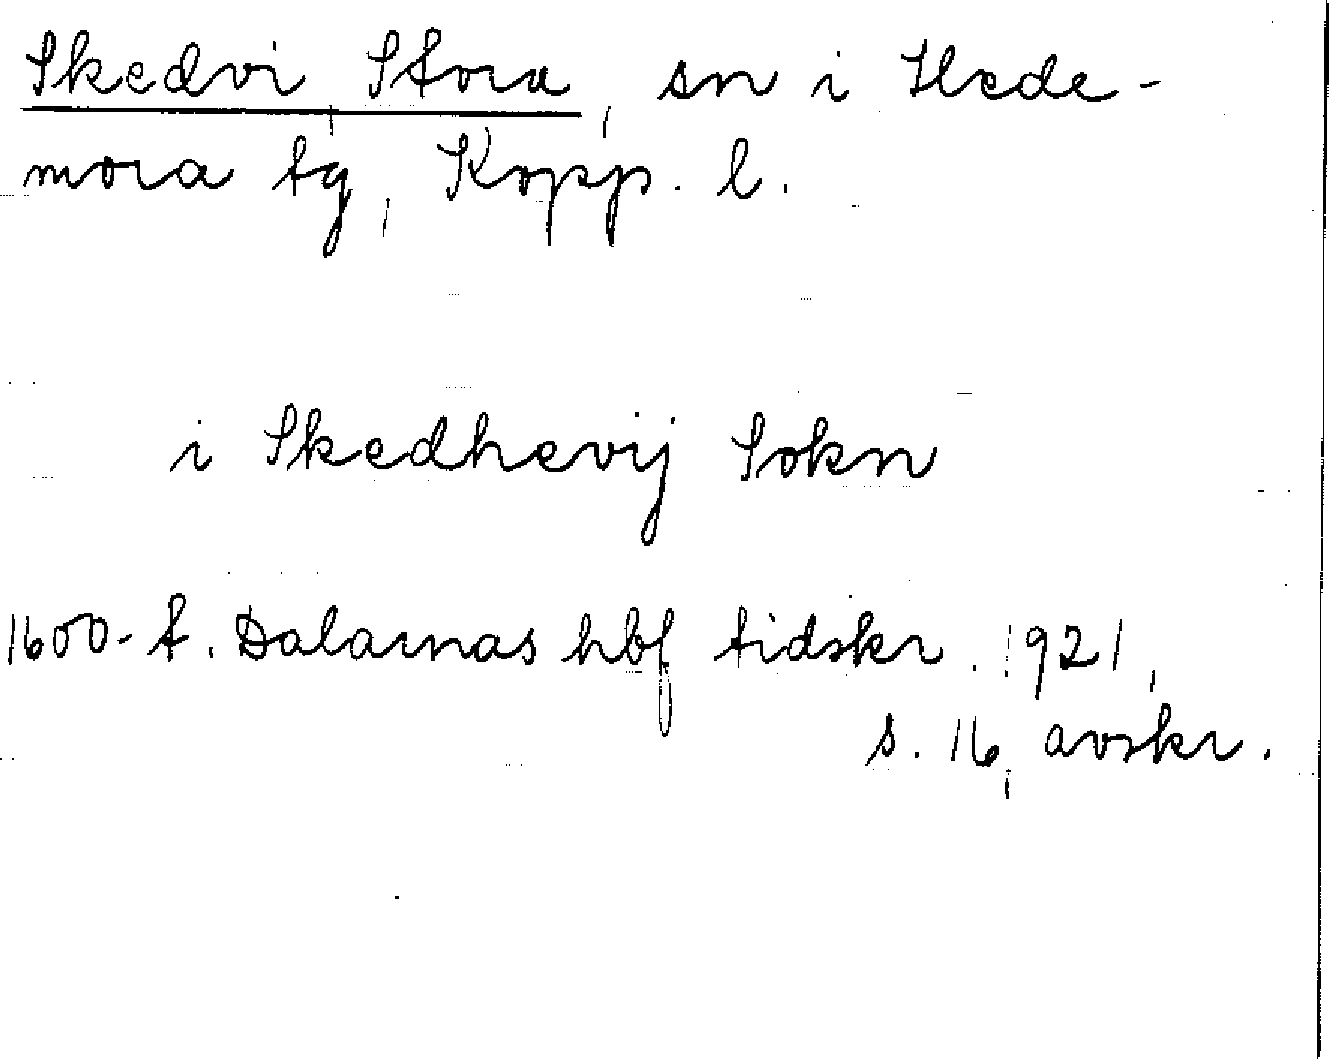 Skedvi Stora, sn i Hede-
mora tg, Kopp. l.
i Skedhevij Sokn
1600-t. Dalarnas hbf tidskr. 1921,
s. 16, avskr.